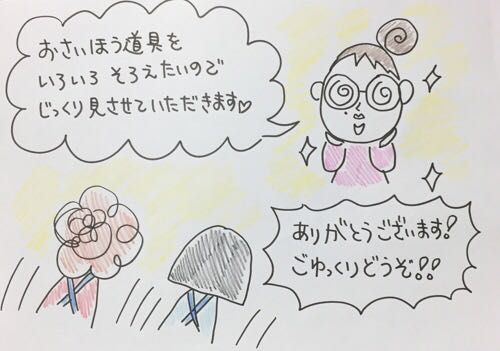 おさいほう道具を
いろいろ そろえたいので
じっくり見させていただきます♡
ありがとうございます!
ごゆっくりどうぞ!!